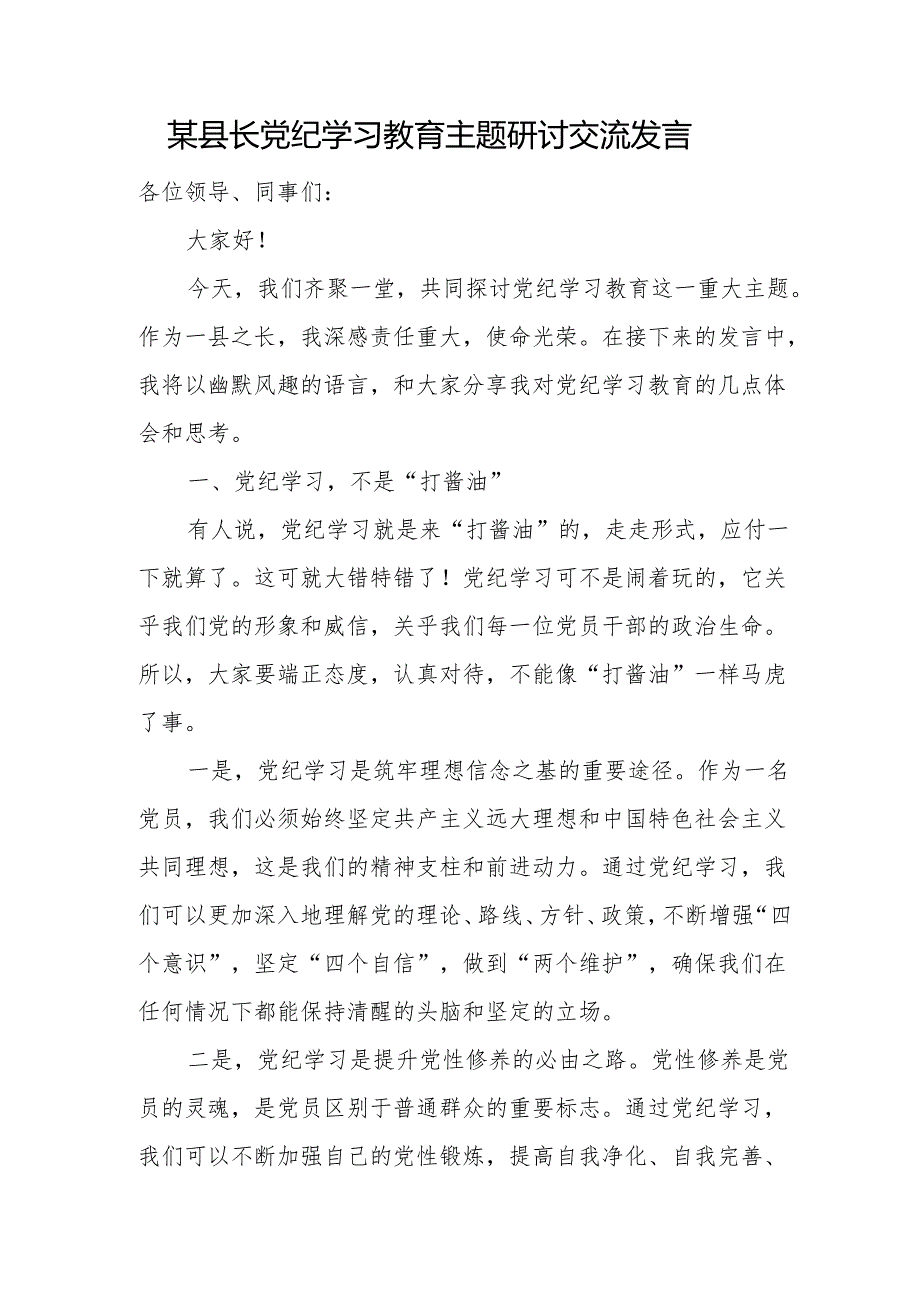 某县长党纪学习教育主题研讨交流发言
各位领导、同事们：
大家好！
今天，我们齐聚一堂，共同探讨党纪学习教育这一重大主题。
作为一县之长，我深感责任重大，使命光荣。在接下来的发言中，
我将以幽默风趣的语言，和大家分享我对党纪学习教育的几点体
会和思考。
一、党纪学习，不是“打酱油”
有人说，党纪学习就是来“打酱油”的，走走形式，应付一
下就算了。这可就大错特错了！党纪学习可不是闹着玩的，它关
乎我们党的形象和威信，关乎我们每一位党员干部的政治生命。
所以，大家要端正态度，认真对待，不能像“打酱油”一样马虎
了事。
一是，党纪学习是筑牢理想信念之基的重要途径。作为一名
党员，我们必须始终坚定共产主义远大理想和中国特色社会主义
共同理想，这是我们的精神支柱和前进动力。通过党纪学习，我
们可以更加深入地理解党的理论、路线、方针、政策，不断增强“四
个意识”，坚定“四个自信”，做到“两个维护”，确保我们在
任何情况下都能保持清醒的头脑和坚定的立场。
二是，党纪学习是提升党性修养的必由之路。党性修养是党
员的灵魂，是党员区别于普通群众的重要标志。通过党纪学习，
我们可以不断加强自己的党性锻炼，提高自我净化、自我完善、